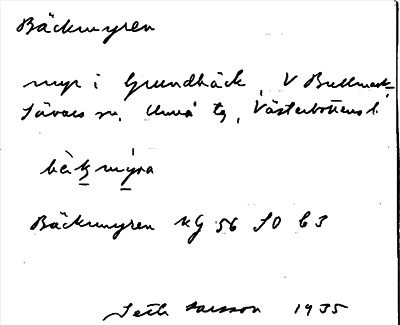 Bäckmyren
myr i Grundbäck, V Bullmark,
Sävars sn, Umeå tg, Västerbottens l.
bèkmýra
Bäckmyren kg 56 SO b3
Seth Larsson 1935